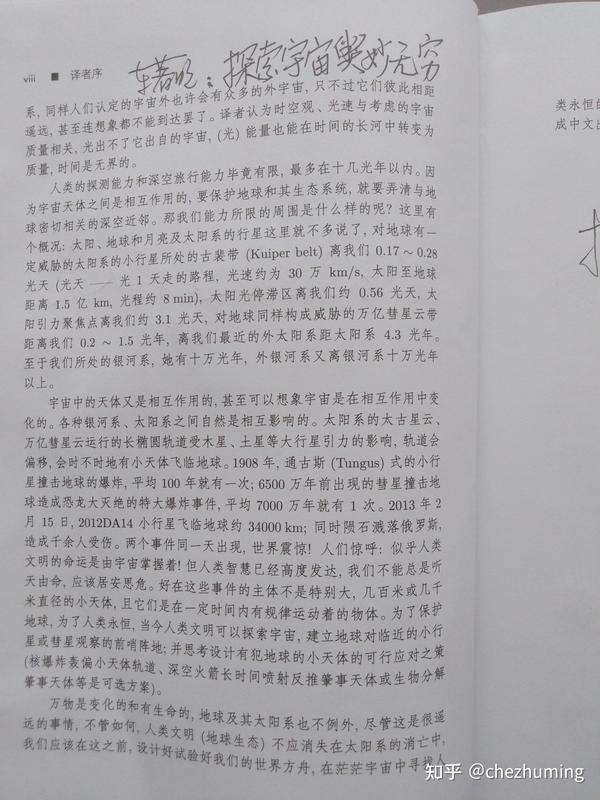 viii ■ 译者序
车著明：探索宇宙奥妙无穷
系, 同样人们认定的宇宙外也许会有众多的外宇宙, 只不过它们彼此相距
遥远, 甚至连想象都不能到达罢了。译者认为时空观、光速与考虑的宇宙
质量相关, 光出不了它出自的宇宙, (光) 能量也能在时间的长河中转变为
质量, 时间是无界的。
人类的探测能力和深空旅行能力毕竟有限, 最多在十几光年以内。因
为宇宙天体之间是相互作用的, 要保护地球和其生态系统, 就要弄清与地
球密切相关的深空近邻。那我们能力所限的周围是什么样的呢? 这里有
个概况: 太阳、地球和月亮及太阳系的行星这里就不多说了, 对地球有一
定威胁的太阳系的小行星所处的古裝带 (Kuiper belt) 离我们 0.17 ~ 0.28
光天 (光天 —— 光 1 天走的路程, 光速约为 30 万 km/s, 太阳至地球
距离 1.5 亿 km, 光程约 8 min), 太阳光停滞区离我们约 0.56 光天, 太
阳引力聚焦点离我们约 3.1 光天, 对地球同样构成威胁的万亿彗星云带
距离我们 0.2 ~ 1.5 光年, 离我们最近的外太阳系距太阳系 4.3 光年。
至于我们所处的银河系, 她有十万光年, 外银河系又离银河系十万光年
以上。
宇宙中的天体又是相互作用的, 甚至可以想象宇宙是在相互作用中变
化的。各种银河系、太阳系之间自然是相互影响的。太阳系的太古星云、
万亿彗星云运行的长椭圆轨道受木星、土星等大行星引力的影响, 轨道会
偏移, 会时不时地有小天体飞临地球。1908 年, 通古斯 (Tungus) 式的小行
星撞击地球的爆炸, 平均 100 年就有一次; 6500 万年前出现的彗星撞击地
球造成恐龙大灭绝的特大爆炸事件, 平均 7000 万年就有 1 次。2013 年 2
月 15 日, 2012DA14 小行星飞临地球约 34000 km; 同时陨石溅落俄罗斯,
造成千余人受伤。两个事件同一天出现, 世界震惊! 人们惊呼: 似乎人类
文明的命运是由宇宙掌握着! 但人类智慧已经高度发达, 我们不能总是听
天由命, 应该居安思危。好在这些事件的主体不是特别大, 几百米或几千
米直径的小天体, 且它们是在一定时间内有规律运动着的物体。为了保护
地球, 为了人类永恒, 当今人类文明可以探索宇宙, 建立地球对临近的小行
星或彗星观察的前哨阵地; 并思考设计有犯地球的小天体的可行应对之策
(核爆炸轰偏小天体轨道、深空火箭长时间喷射反推肇事天体或生物分解
肇事天体等是可选方案)。
万物是变化的和有生命的, 地球及其太阳系也不例外, 尽管这是很遥
远的事情, 不管如何, 人类文明 (地球生态) 不应消失在太阳系的消亡中,
我们应该在这之前, 设计好试验好我们的世界方舟, 在茫茫宇宙中寻找人
类永恒的
成中文出
知乎 @chezhuming